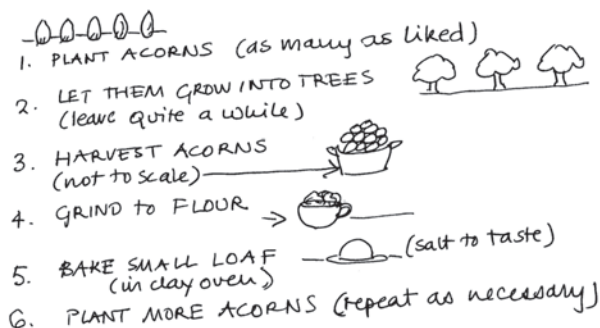 1. PLANT ACORNS (as many as liked)
2. LET THEM GROW INTO TREES
(leave quite a while)
3. HARVEST ACORNS
(not to scale)
4. GRIND to FLOUR
5. BAKE SMALL LOAF (salt to taste)
(in clay oven)
6. PLANT MORE ACORNS (repeat as necessary)